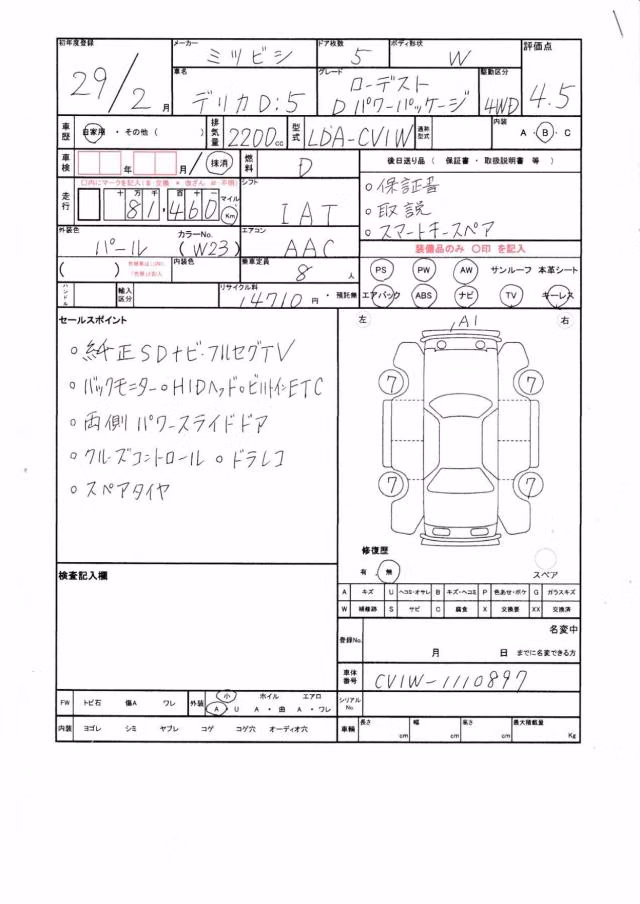 初年度登録 29/2月
メーカー ミツビシ ドア枚数 5 ボディ形状 W
評価点 4.5
車名 デリカD:5 グレード ローデスト Dパワーパッケージ 駆動区分 4WD
車歴 自家用・その他( ) 排気量 2200cc 型式 LDA-CV1W 通称型式 内装 A・B・C
車検 年 月/ 抹消 燃料 D
後日送り品 ( 保証書 ・ 取扱説明書 等 )
走行 十万千百十一 81,460 マイル Km シフト IAT
○保証書
○取説
○スマートキースペア
外装色 パール カラーNo. (W23) エアコン AAC
装備品のみ ○印 を記入
( ) 内装色 乗車定員 8人
PS PW AW サンルーフ 本革シート
ハンドル 輸入区分 リサイクル料 14710円・預託無
エアバック ABS ナビ TV キーレス
セールスポイント
○純正SDナビ・フルセグTV
○バックモニター○HIDヘッド○ビルトインETC
○両側パワースライドドア
○クルーズコントロール ○ドラレコ
○スペアタイヤ
左 A1 右
7 7
7 7
修復歴
有・無
スペア
検査記入欄
A キズ U ヘコミ・オサレ B キズ・ヘコミ P 色あせ・ボケ G ガラスキズ
W 補修跡 S サビ C 腐食 X 交換要 XX 交換済
登録No. 名変中
月 日 までに名変できる方
車体番号 CV1W-1110897
シリアルNo
FW トビ石 傷A ワレ 外装 小 ホイル エアロ
A・U A・曲 A・ワレ
内装 ヨゴレ シミ ヤブレ コゲ コゲ穴 オーディオ穴
車輌 長さ cm 幅 cm 高さ cm 最大積載量 Kg